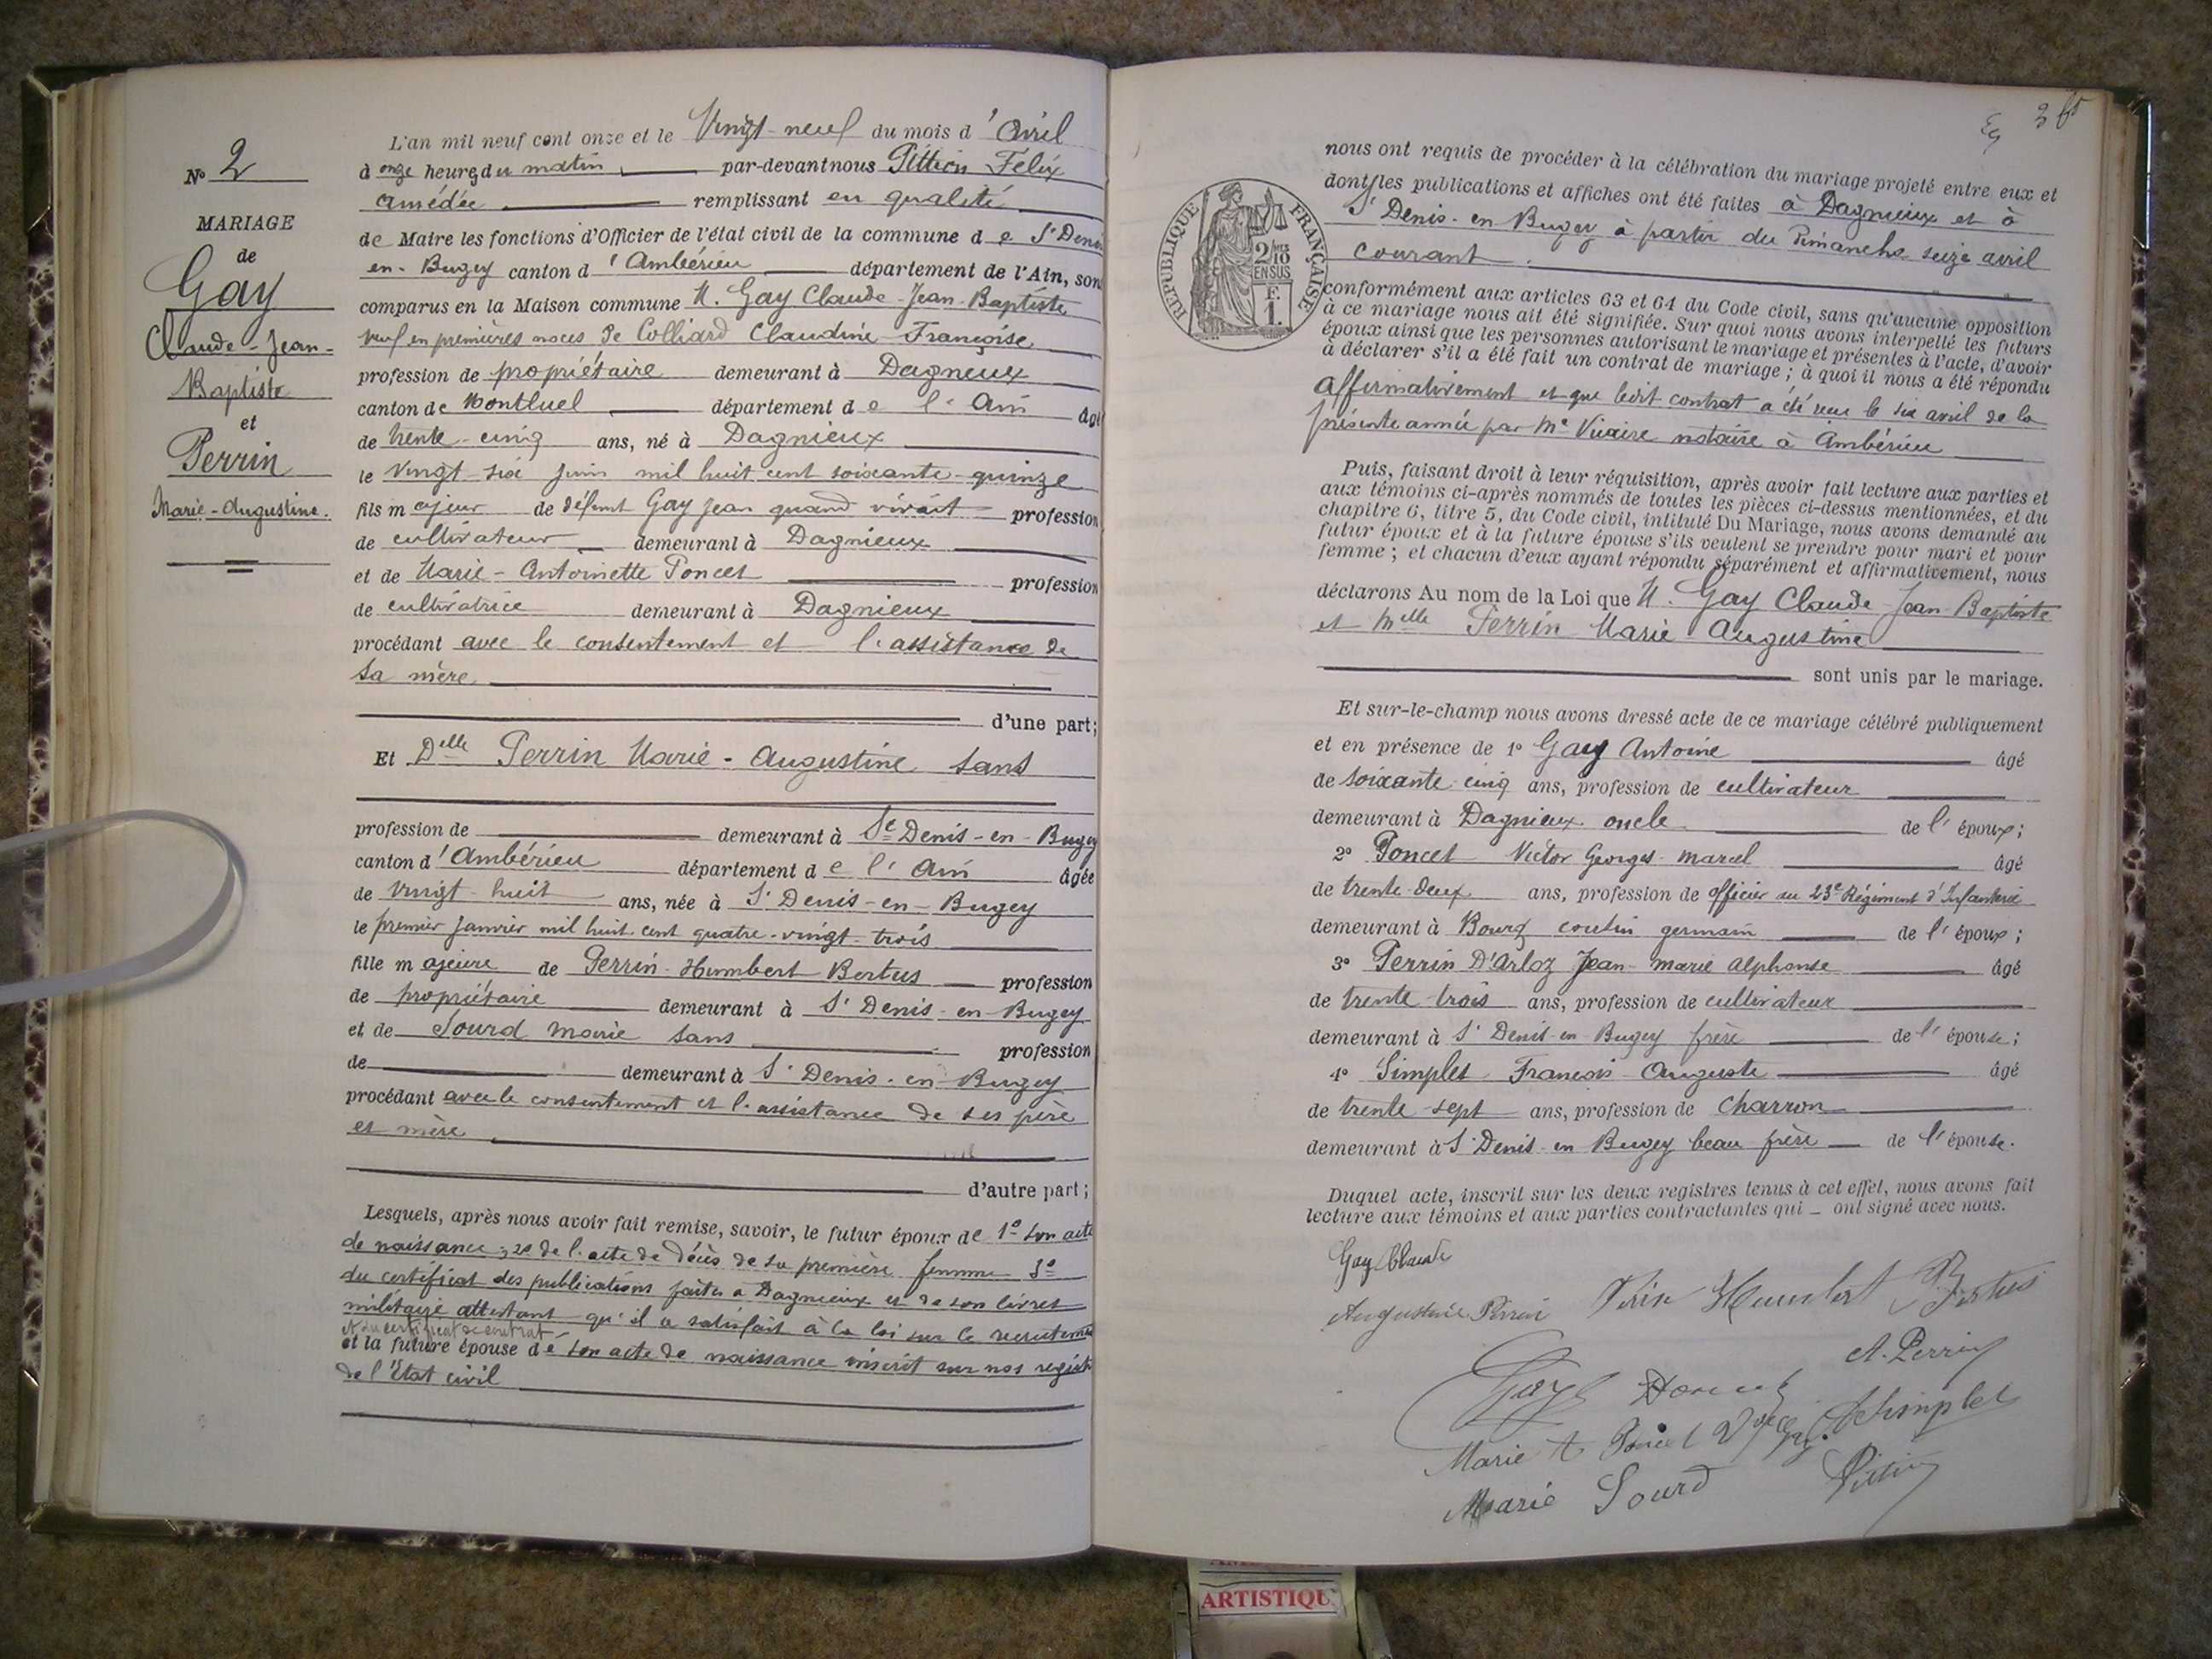 N° 2
MARIAGE
de
Gay
Claude-Jean-
Baptiste
et
Perrin
Marie-Augustine.
L'an mil neuf cent onze et le Vingt-neuf du mois d'Avril
à onze heures du matin par-devant nous Pittion Félix
Amédée remplissant en qualité
de Maire les fonctions d'Officier de l'état civil de la commune de St Denis
en-Bugey canton d'Ambérieu département de l'Ain, son
comparus en la Maison commune M. Gay Claude-Jean-Baptiste
veuf en premières noces de Colliard Claudine-Françoise
profession de propriétaire demeurant à Dagneux
canton de Montluel département de l'Ain âgé
de trente-cinq ans, né à Dagnieux
le vingt-six juin mil huit cent soixante-quinze
fils majeur de défunt Gay Jean quand vivait profession
de cultivateur demeurant à Dagnieux
et de Marie-Antoinette Poncet profession
de cultivatrice demeurant à Dagnieux
procédant avec le consentement et l'assistance de
sa mère
d'une part;
Et Delle Perrin Marie-Augustine sans
profession de demeurant à St Denis-en-Bugey
canton d'Ambérieu département de l'Ain âgée
de vingt-huit ans, née à St Denis-en-Bugey
le premier Janvier mil huit cent quatre-vingt-trois
fille majeure de Perrin-Humbert Bertus profession
de propriétaire demeurant à St Denis-en-Bugey
et de Sourd Marie sans profession
de demeurant à St Denis-en-Bugey
procédant avec le consentement et l'assistance de ses père
et mère
d'autre part;
Lesquels, après nous avoir fait remise, savoir, le futur époux de 1° son acte
de naissance; 2° de l'acte de décès de sa première femme 3°
du certificat des publications faites à Dagnieux et de son livret
militaire attestant qu'il a satisfait à la loi sur le recrutement
et du certificat de contrat
et la future épouse de son acte de naissance inscrit sur nos registres
de l'État civil
3
RÉPUBLIQUE FRANÇAISE
2/10 EN SUS
F. 1.
nous ont requis de procéder à la célébration du mariage projeté entre eux et
dont les publications et affiches ont été faites à Dagnieux et à
St Denis-en-Bugey à partir du Dimanche seize avril
courant.
conformément aux articles 63 et 64 du Code civil, sans qu'aucune opposition
à ce mariage nous ait été signifiée. Sur quoi nous avons interpellé les futurs
époux ainsi que les personnes autorisant le mariage et présentes à l'acte, d'avoir
à déclarer s'il a été fait un contrat de mariage; à quoi il nous a été répondu
affirmativement et que ledit contrat a été reçu le six avril de la
présente année par Me Vicaire notaire à Ambérieu
Puis, faisant droit à leur réquisition, après avoir fait lecture aux parties et
aux témoins ci-après nommés de toutes les pièces ci-dessus mentionnées, et du
chapitre 6, titre 5, du Code civil, intitulé Du Mariage, nous avons demandé au
futur époux et à la future épouse s'ils veulent se prendre pour mari et pour
femme; et chacun d'eux ayant répondu séparément et affirmativement, nous
déclarons Au nom de la Loi que M. Gay Claude-Jean-Baptiste
et Melle Perrin Marie Augustine
sont unis par le mariage.
Et sur-le-champ nous avons dressé acte de ce mariage célébré publiquement
et en présence de 1° Gay Antoine âgé
de soixante-cinq ans, profession de cultivateur
demeurant à Dagnieux oncle de l'époux;
2° Poncet Victor Georges-Marcel âgé
de trente-deux ans, profession de officier au 23e Régiment d'Infanterie
demeurant à Bourg cousin germain de l'époux;
3° Perrin D'Arloz Jean-Marie Alphonse âgé
de trente-trois ans, profession de cultivateur
demeurant à St Denis-en-Bugey frère de l'épouse;
4° Simplet François-Auguste âgé
de trente-sept ans, profession de charron
demeurant à St Denis-en-Bugey beau-frère de l'épouse.
Duquel acte, inscrit sur les deux registres tenus à cet effet, nous avons fait
lecture aux témoins et aux parties contractantes qui ont signé avec nous.
Gay Claude
Augustine Perrin Perrin Humbert Bertus
A. Perrin
Gay Poncet
Marie A Poncet Vve Gay Simplet
Marie Sourd Pittion
ARTISTIQU